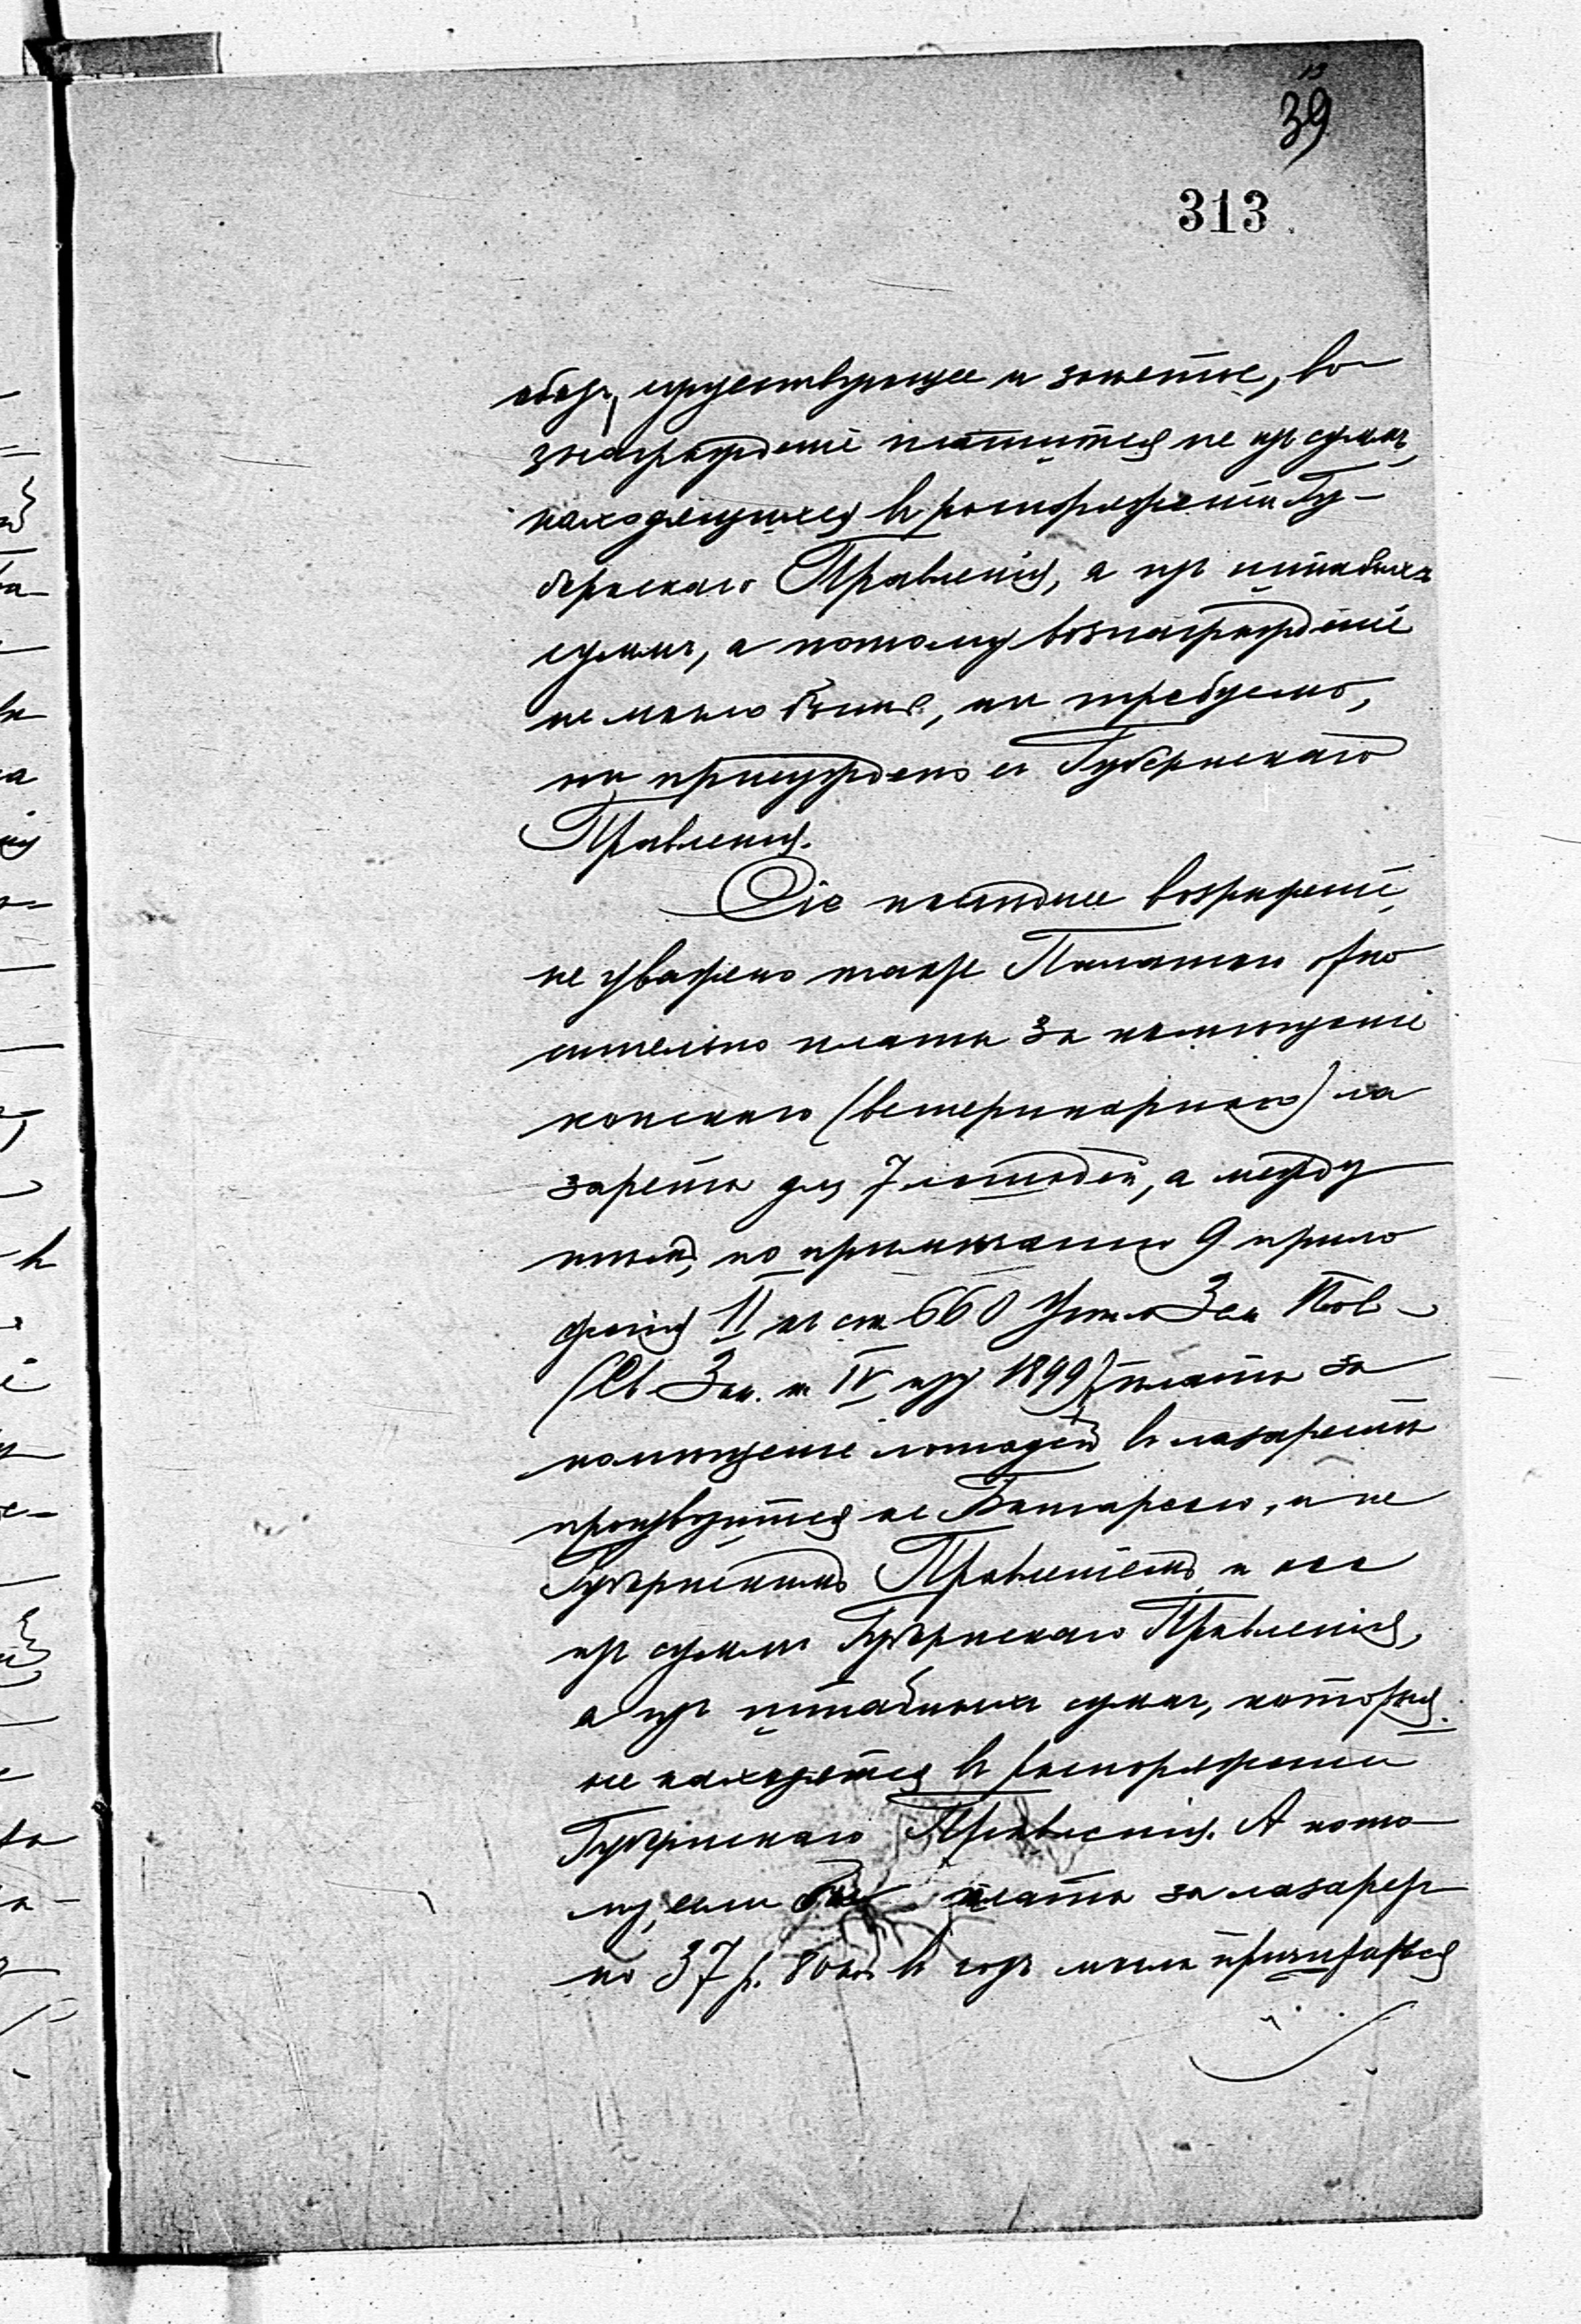 39
313
существующее и занятое, во-
знагражденіе платится не изъ суммъ,
находящихся въ распоряженіи Гу-
бернскаго Правленія, а изъ штабныхъ
суммъ, а потому вознагражденіе
не могло быть, ни требуемо,
ни присуждено съ Губернскаго
Правленія.
Сіе послѣднее возраженіе,
не уважено также Палатою отно
сительно платы за помѣщеніе
конскаго (ветеринарнаго) ла
зарета для 7 лошадей, а между
тѣмъ, по примѣчанію 9 прило
женія II къ ст 660 Уст о Зем Пов
(Св. Зак. т IV изд 1899) плата за
помѣщеніе лошадей въ лазаретѣ
производится не Бессарабскимъ, а не
Губернскимъ Правленіемъ и не
изъ суммъ Губернскаго Правленія,
а изъ штабныхъ суммъ, которыя
не находятся въ распоряженіи
Губернскаго Правленія. А пото-
му, если бы плата за лазаретъ
по 37 р. 80 коп въ годъ могла